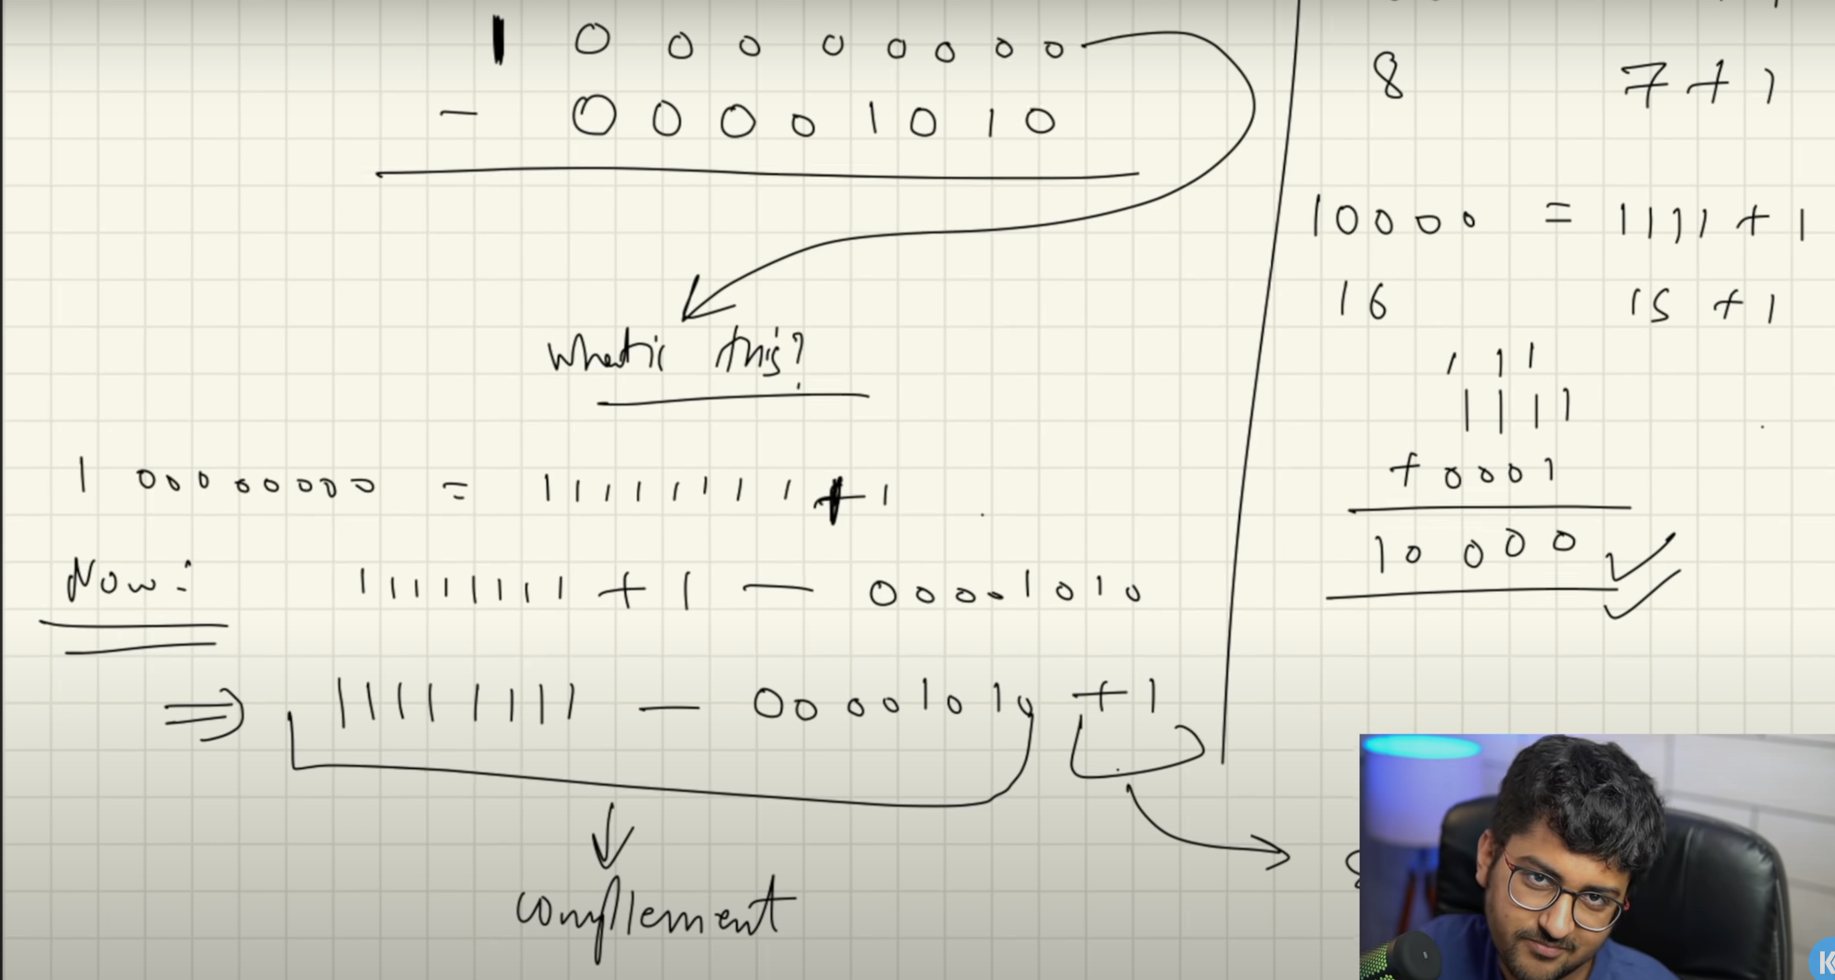 1 0 0 0 0 0 0 0 0
- 0 0 0 0 1 0 1 0
What is this?
1 00000000 = 11111111 + 1
Now: 11111111 + 1 - 00001010
⇒ 11111111 - 00001010 + 1
complement
8 7 + 1
10000 = 1111 + 1
16 15 + 1
1 1 1
1 1 1 1
+ 0001
10000 ✓✓
K